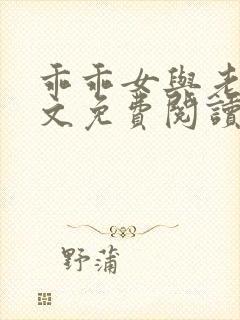 乖乖女與老
文免費閱讀
野蒲